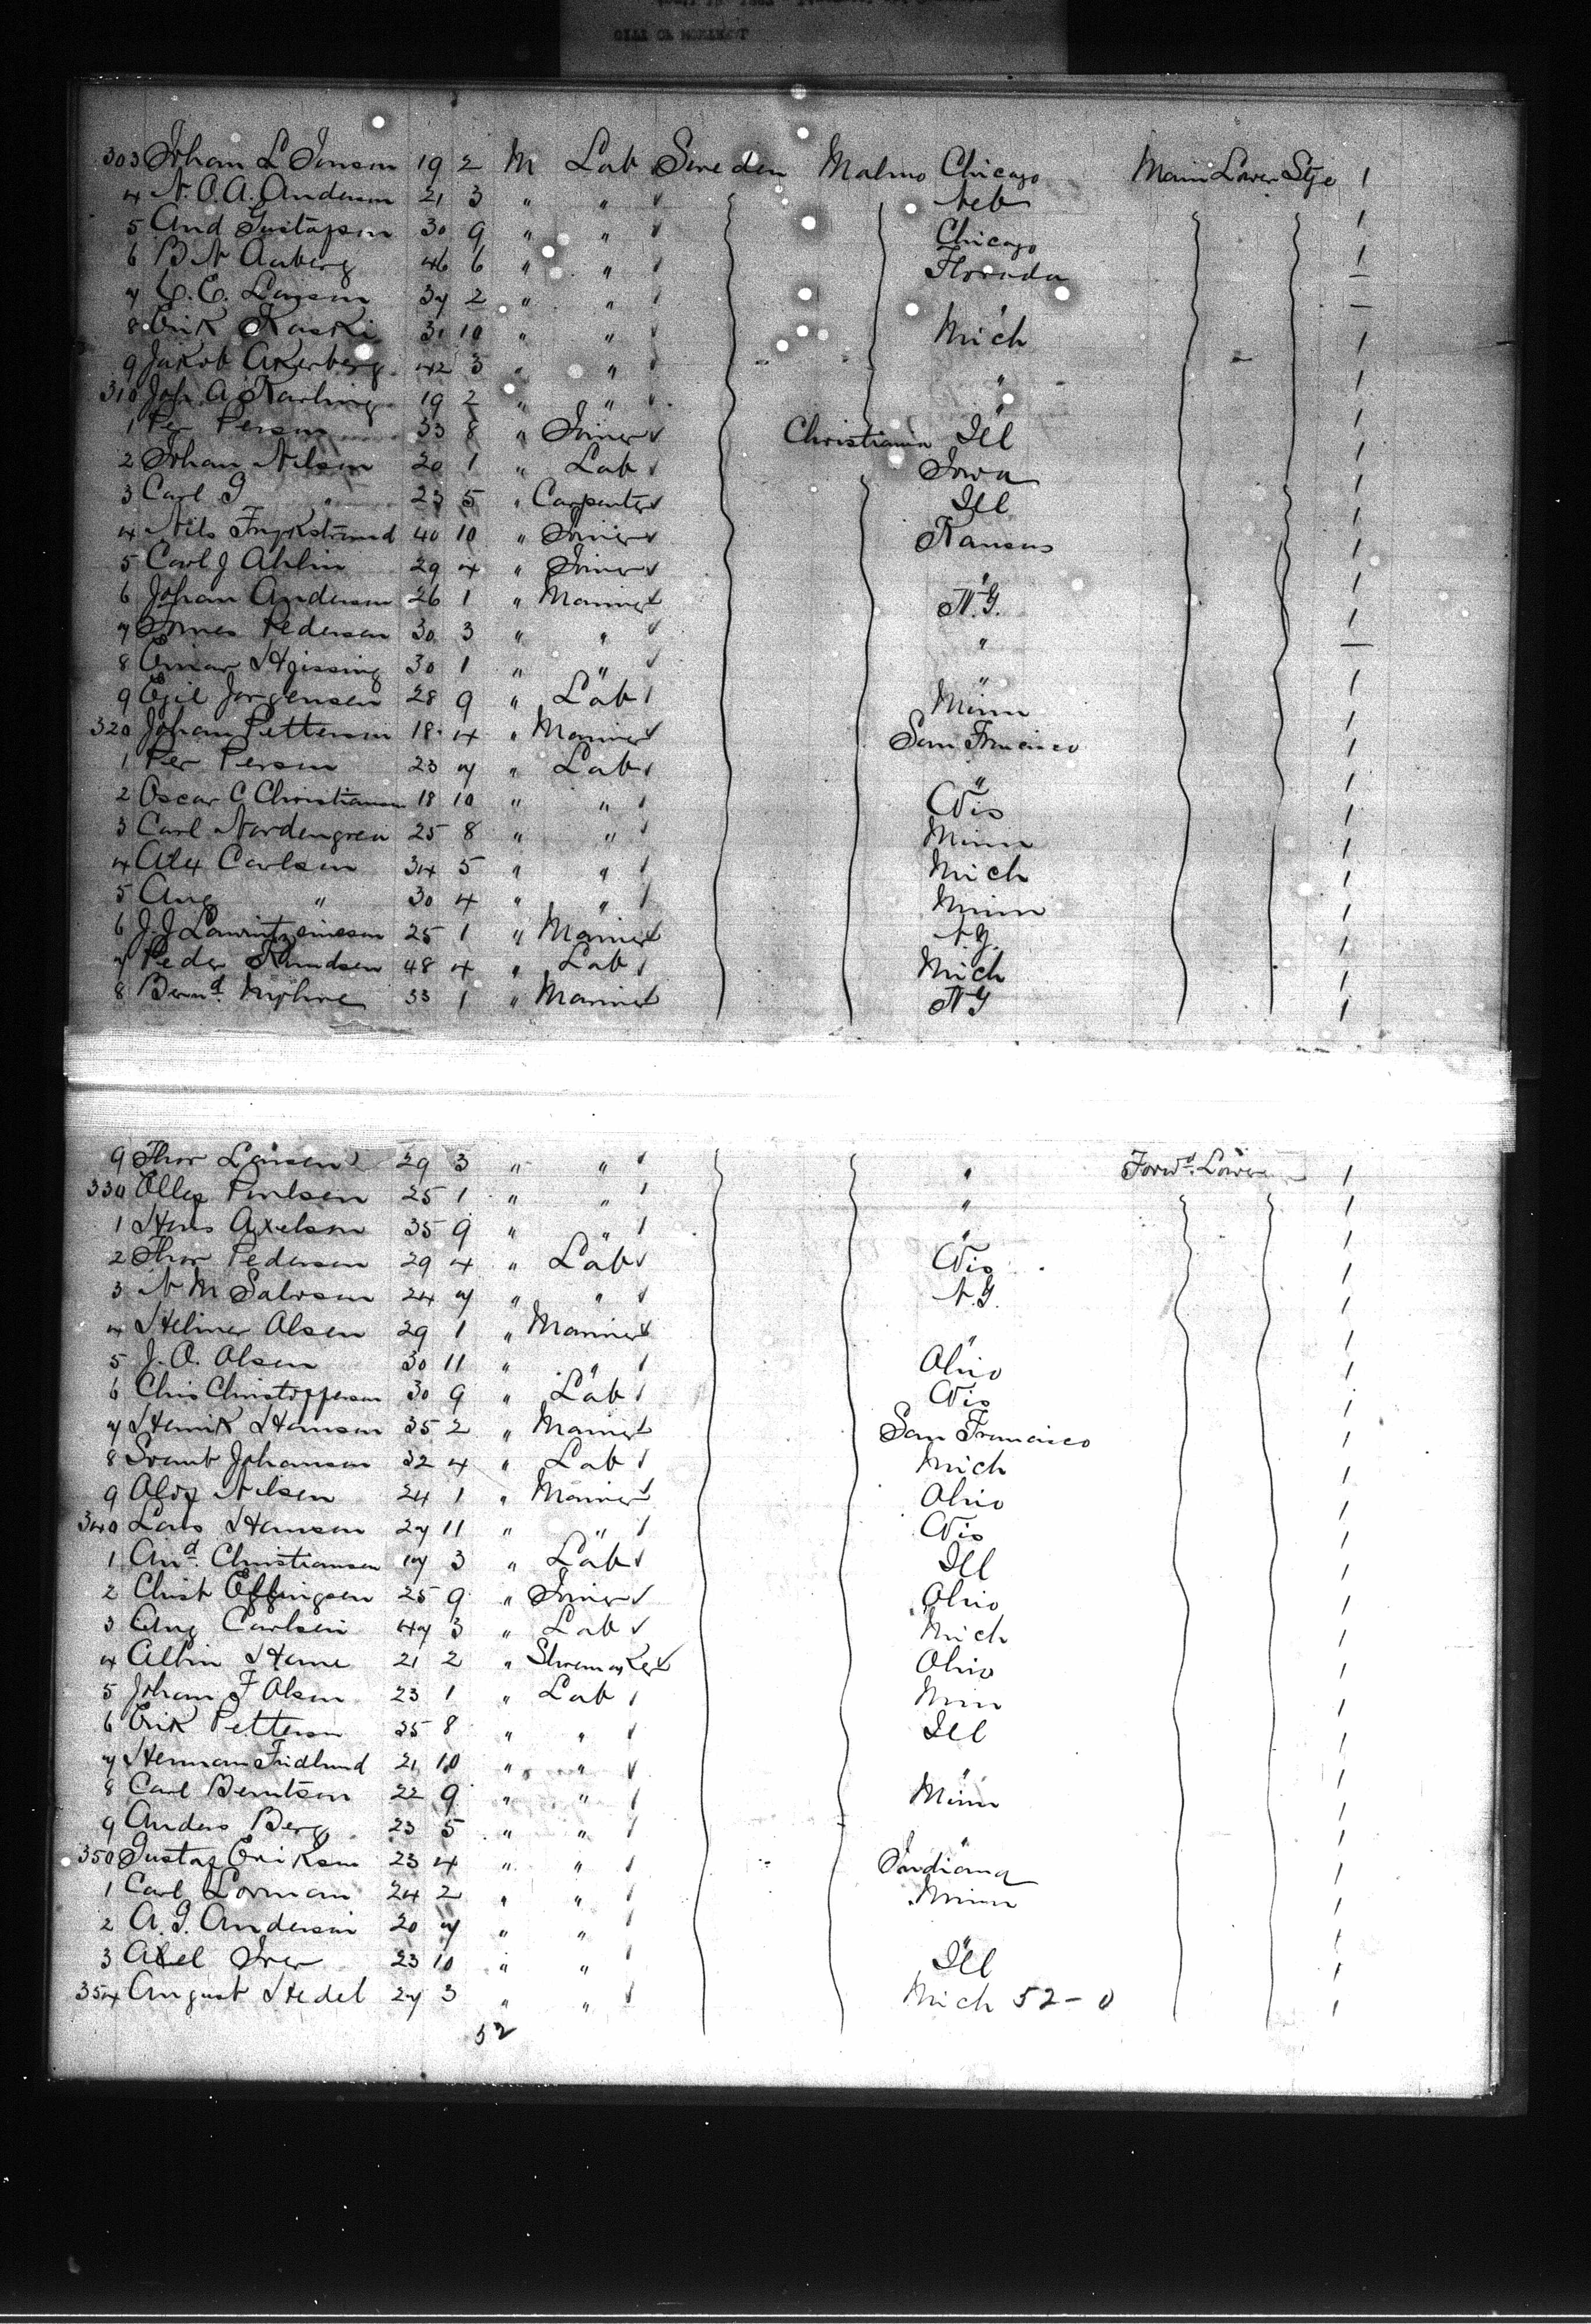 303 Johan L Jonson 19 2 M Lab Sweden Malmo Chicago Main Lower Stge 1
4 N. O. A. Anderson 21 3 " " Neb 1
5 And Gustafson 30 9 " " Chicago 1
6 B N 46 6 " " Florada —
7 C. E. Larson 37 2 " " " —
8 Erik Kaski 31 10 " " Mich 1
9 Jakob Akerberg 42 3 " " " 1
310 Joh. A Karling 19 2 " " " 1
1 Per Person 33 8 " Joiner Christiania Ill 1
2 Johan Nilson 20 1 " Lab Iowa 1
3 Carl G " 23 5 " Carpenter Ill 1
4 Nils Frykstrand 40 10 " Joiner Kansas 1
5 Carl J Ahlin 29 4 " Joiner " 1
6 Johan Anderson 26 1 " Mariner N.Y. 1
7 Pedersen 30 3 " " " —
8 Einar Hjissing 30 1 " " " 1
9 Egil Jorgensen 28 9 " Lab Minn 1
320 Johan Petterson 18 4 " Mariner San Francisco 1
1 Per Person 23 7 " Lab " 1
2 Oscar C Christianson 18 10 " " Wis 1
3 Carl Nordengren 25 8 " " Minn 1
4 Alex Carlson 34 5 " " Mich 1
5 Aug " 30 4 " " Minn 1
6 J. J. 25 1 " Mariner N.Y. 1
7 Peder Knudsen 48 4 " Lab Mich 1
8 Bernd. 33 1 " Mariner N Y 1
9 Thor Larsen 29 3 " " " Forwd. Lower 1
330 Paulsen 25 1 " " " 1
1 Hans Axelson 35 9 " " " 1
2 Thor Pedersen 29 4 " Lab Wis 1
3 N M Salvosen 24 7 " " N.Y. 1
4 Helmer Olsen 29 1 " Mariner " 1
5 J. A. Olsen 30 11 " " Ohio 1
6 Chris Christofferson 30 9 " Lab Wis 1
7 Henrik Hanson 35 2 " Mariner San Francisco 1
8 Johanson 32 4 " Lab Mich 1
9 Nilsen 24 1 " Mariner Ohio 1
340 Lars Hanson 27 11 " " Wis 1
1 And. Christiansen 17 3 " Lab Ill 1
2 Christ Effingsen 25 9 " Joiner Ohio 1
3 Aug Carlsen 47 3 " Lab Mich 1
4 Albin 21 2 " Shoemaker Ohio 1
5 Johan F Olsen 23 1 " Lab Minn 1
6 Erik Petterson 25 8 " " Ill 1
7 Herman Fridlund 21 10 " " " 1
8 Carl Berntson 22 9 " " Minn 1
9 Anders Berg 23 5 " " " 1
350 Gustaf Erikson 23 4 " " Indiana 1
1 Carl Lorman 24 2 " " Minn 1
2 A. G. Anderson 20 7 " " " 1
3 Axel Iver 23 10 " " Ill 1
354 August Hedel 27 3 " " Mich 52-0 1
52